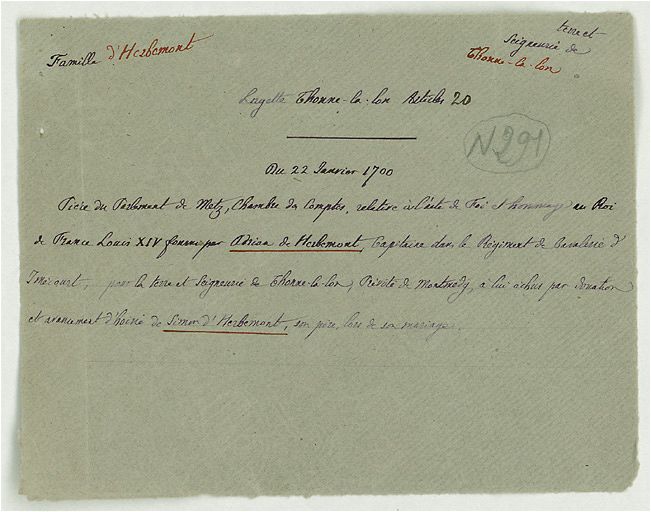 Famille d'Herbemont
terre et
Seigneurie de
Thonne-la-lon
Layette Thonne-la-lon Articles 20
N 291
Du 22 Janvier 1700
Pièce du Parlement de Metz, Chambre des Comptes, relative à l'acte de Foi et hommage au Roi
de France Louis XIV fourni par Adrien de Herbemont, Capitaine dans le Régiment de Cavalerie d'
Imécourt, pour la terre et Seigneurie de Thonne-la-lon, Prévôté de Montmédy, à lui échus par donation
et avancement d'hoirie de Simon d'Herbemont, son père, lors de son mariage.